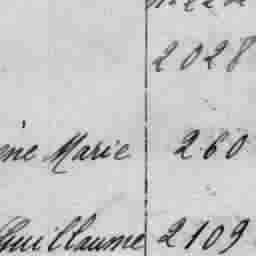 2028
ne Marie 260
Guillaume 2109